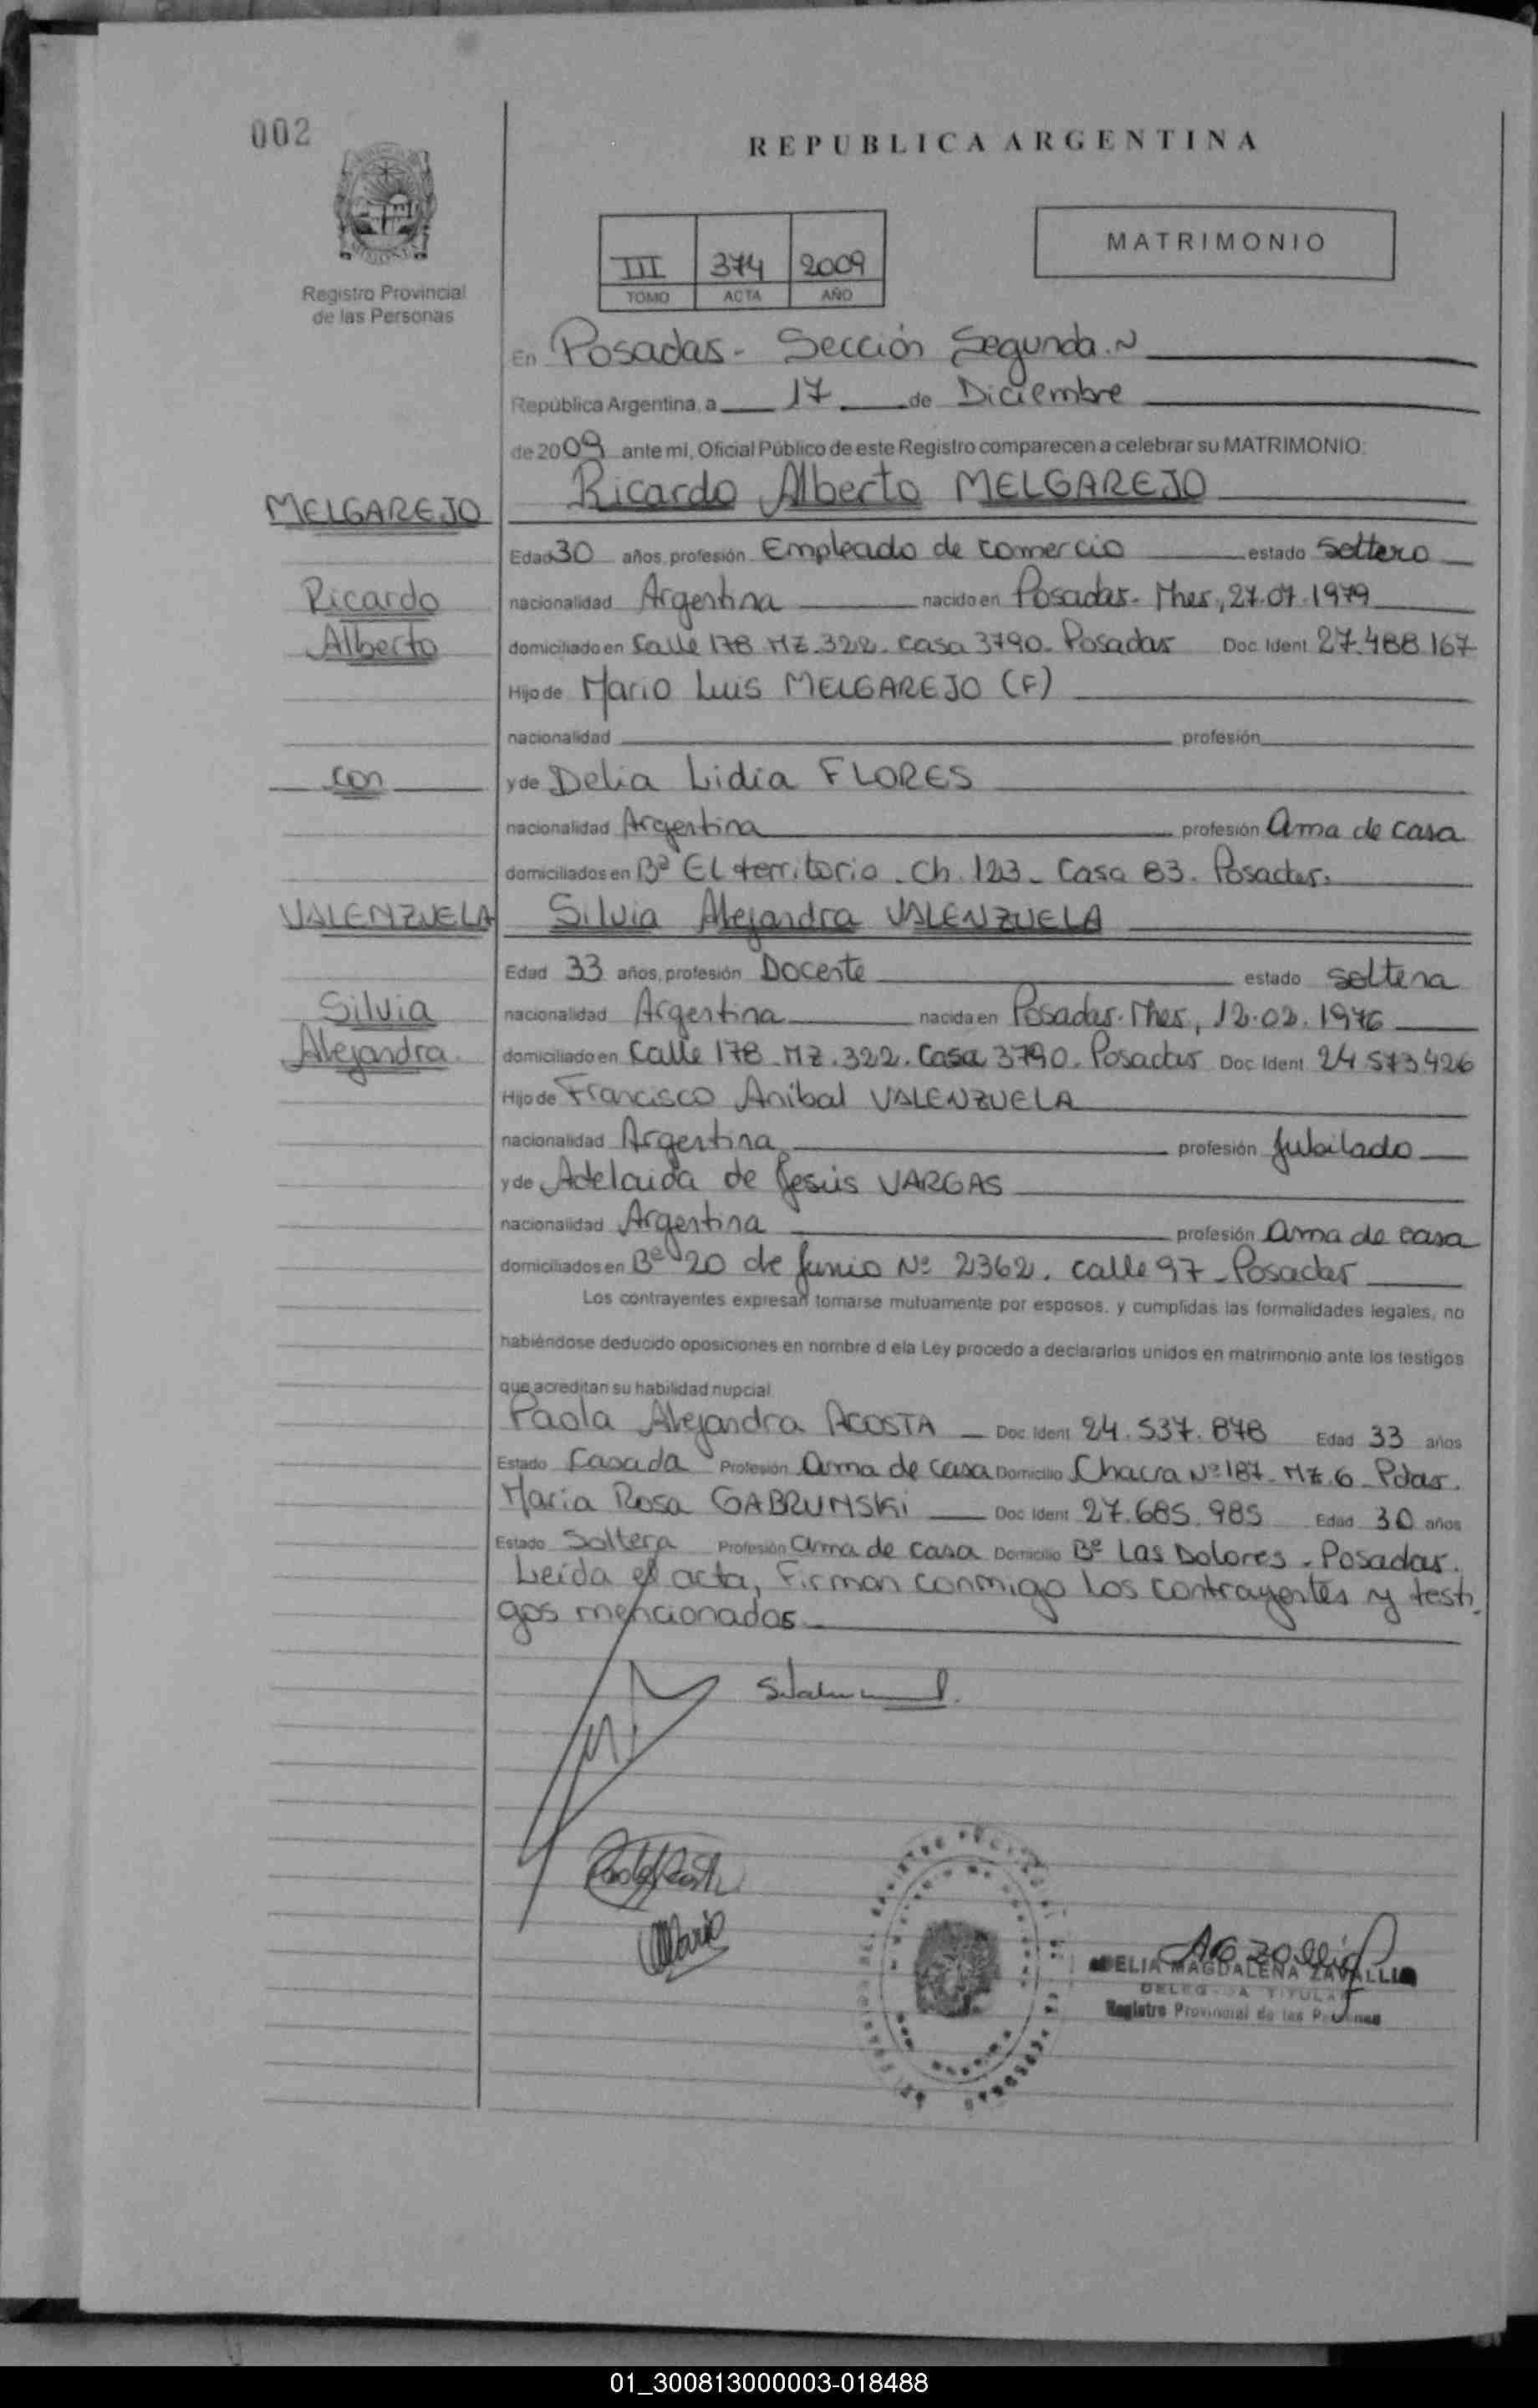 002
REPUBLICA ARGENTINA
MATRIMONIO
III 374 2009
TOMO ACTA AÑO
Registro Provincial
de las Personas
En Posadas - Sección Segunda.~
República Argentina, a 17 de Diciembre
de 2009 ante mi, Oficial Público de este Registro comparecen a celebrar su MATRIMONIO:
MELGAREJO
Ricardo Alberto MELGAREJO
Edad 30 años, profesión Empleado de comercio estado soltero
Ricardo
nacionalidad Argentina nacido en Posadas - Mnes, 27.07.1979
Alberto
domiciliado en Calle 178 MZ.322. casa 3790. Posadas Doc. Ident. 27.488.167
Hijo de Mario Luis MELGAREJO (F)
nacionalidad profesión
con
y de Delia Lidia FLORES
nacionalidad Argentina profesión ama de casa
domiciliados en Bº El territorio. Ch. 123 - Casa 83. Posadas.
VALENZUELA
Silvia Alejandra VALENZUELA
Edad 33 años, profesión Docente estado soltera
Silvia
nacionalidad Argentina nacida en Posadas. Mnes, 12.02.1976
Alejandra
domiciliado en Calle 178 - MZ.322. Casa 3790. Posadas Doc. Ident. 24 573 426
Hijo de Francisco Anibal VALENZUELA
nacionalidad Argentina profesión Jubilado
y de Adelaida de Jesús VARGAS
nacionalidad Argentina profesión ama de casa
domiciliados en Bº 20 de Junio Nº 2362. calle 97 - Posadas
Los contrayentes expresan tomarse mutuamente por esposos, y cumplidas las formalidades legales, no
habiéndose deducido oposiciones en nombre d ela Ley procedo a declararlos unidos en matrimonio ante los testigos
que acreditan su habilidad nupcial
Paola Alejandra ACOSTA - Doc. Ident 24.537.878 Edad 33 años
Estado Casada Profesión ama de casa Domicilio Chacra Nº 187 - MZ.6 - Pdas.
Maria Rosa GABRUNSKi Doc. Ident 27.685.985 Edad 30 años
Estado Soltera Profesión ama de casa Domicilio Bº Las Dolores - Posadas.
Leída el acta, Firman conmigo los contrayentes y testi-
gos mencionados
DELIA MAGDALENA ZAVALLIA
DELEGADA TITULAR
Registro Provincial de las Personas
01_300813000003-018488